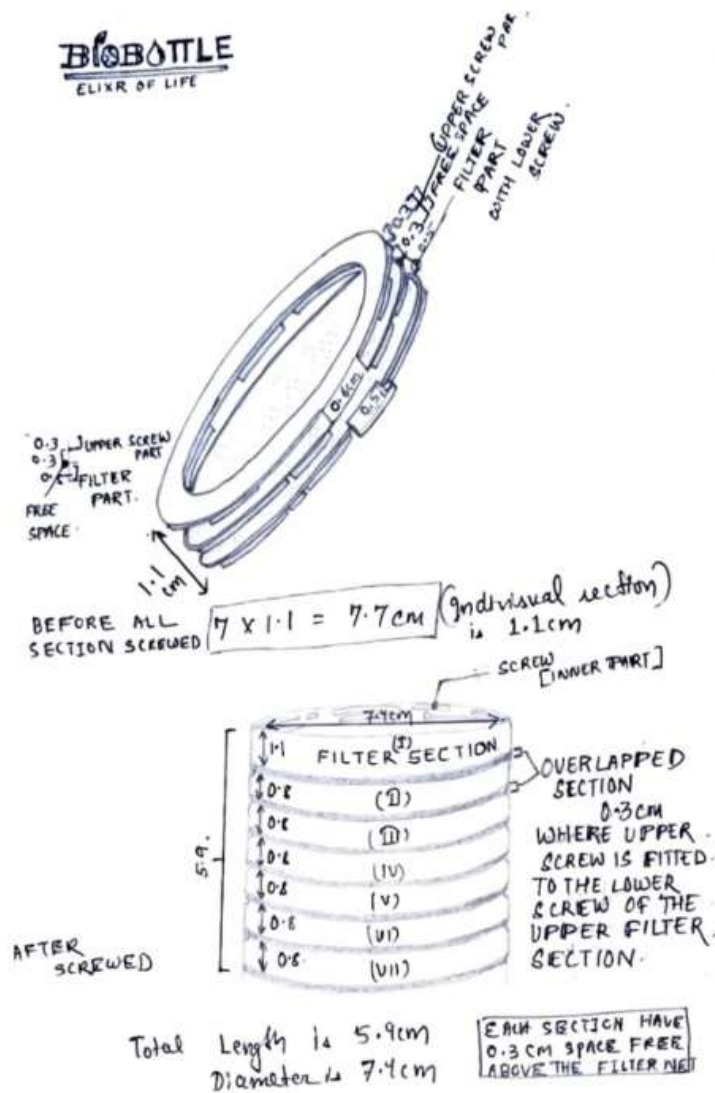 BIOBOTTLE
ELIXR OF LIFE
UPPER SCREW PAR.
FREE SPACE
FILTER
PART
WITH LOWER
SCREW.
0.3
0.3
0.6cm
0.5
0.3 UPPER SCREW
PART
0.3
FILTER
PART.
FREE
SPACE.
1.1
cm
BEFORE ALL
SECTION SCREWED
7 X 1.1 = 7.7cm
(Indivisual section)
is 1.1cm
SCREW
[INNER PART]
7.4cm
1.1
(I)
FILTER SECTION
0.8
(II)
0.8
(III)
0.8
(IV)
0.8
(V)
0.8
(VI)
0.8
(VII)
5.9.
OVERLAPPED
SECTION
0.3cm
WHERE UPPER
SCREW IS FITTED
TO THE LOWER
SCREW OF THE
UPPER FILTER
SECTION.
AFTER
SCREWED
Total Length is 5.9cm
Diameter is 7.4cm
EACH SECTION HAVE
0.3 CM SPACE FREE
ABOVE THE FILTER NET